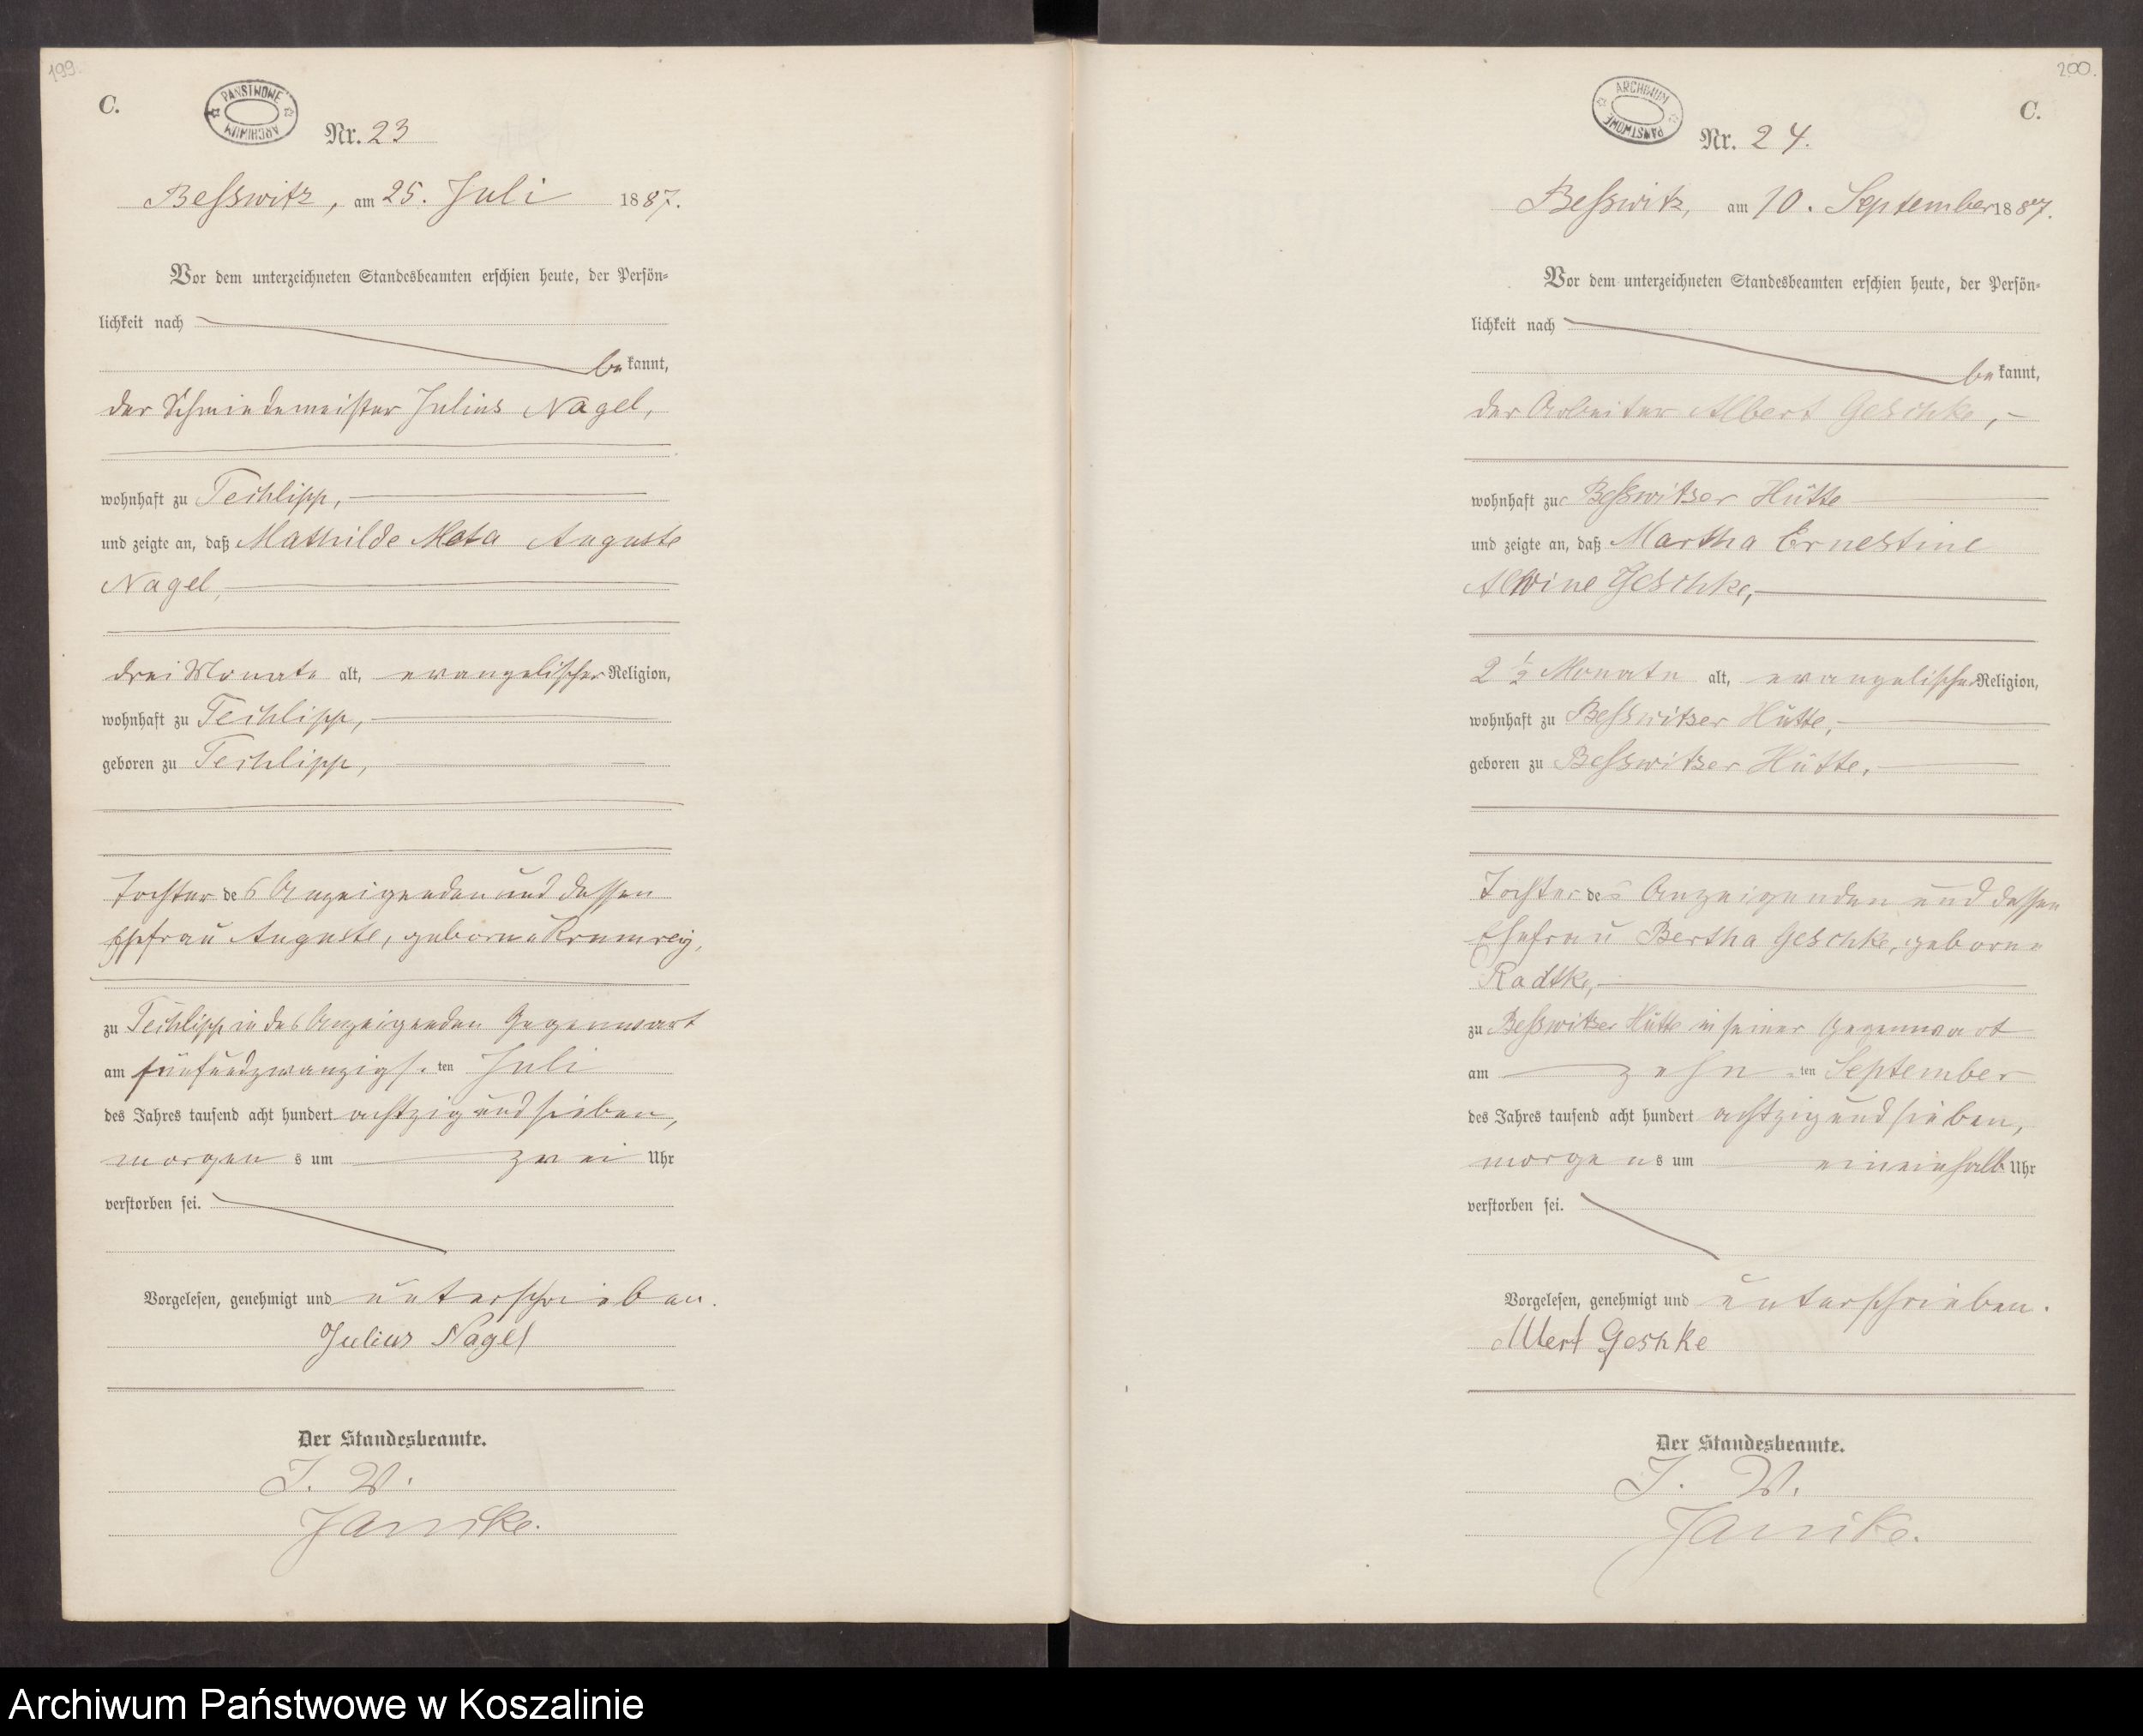 199.
C.
PAŃSTWOWE ARCHIWUM
Nr. 23
Besswitz, am 25. Juli 1887.
Vor dem unterzeichneten Standesbeamten erschien heute, der Persön-
lichkeit nach
bekannt,
der Schmiedemeister Julius Nagel,
wohnhaft zu Techlipp,
und zeigte an, daß Mathilde Meta Auguste
Nagel,
drei Monate alt, evangelischer Religion,
wohnhaft zu Techlipp,
geboren zu Techlipp,
Tochter des Anzeigenden und dessen
Ehefrau Auguste, geborne Krumrey,
zu Techlipp in des Anzeigenden Gegenwart
am fünfundzwanzigsten Juli
des Jahres tausend acht hundert achtzig und sieben,
morgens um zwei Uhr
verstorben sei.
Vorgelesen, genehmigt und unterschrieben.
Julius Nagel
Der Standesbeamte.
J. V.
Janike.
200.
C.
ARCHIWUM PAŃSTWOWE
Nr. 24.
Besswitz, am 10. September 1887.
Vor dem unterzeichneten Standesbeamten erschien heute, der Persön-
lichkeit nach
bekannt,
der Arbeiter Albert Geschke,
wohnhaft zu Besswitzer Hütte
und zeigte an, daß Martha Ernestine
Alwine Geschke,
2 1/2 Monate alt, evangelischer Religion,
wohnhaft zu Besswitzer Hütte,
geboren zu Besswitzer Hütte,
Tochter des Anzeigenden und dessen
Ehefrau Bertha Geschke, geborne
Radtke,
zu Besswitzer Hütte in seiner Gegenwart
am zehnten September
des Jahres tausend acht hundert achtzig und sieben,
morgens um eineinhalb Uhr
verstorben sei.
Vorgelesen, genehmigt und unterschrieben.
Albert Geshke
Der Standesbeamte.
J. V.
Janike.
Archiwum Państwowe w Koszalinie